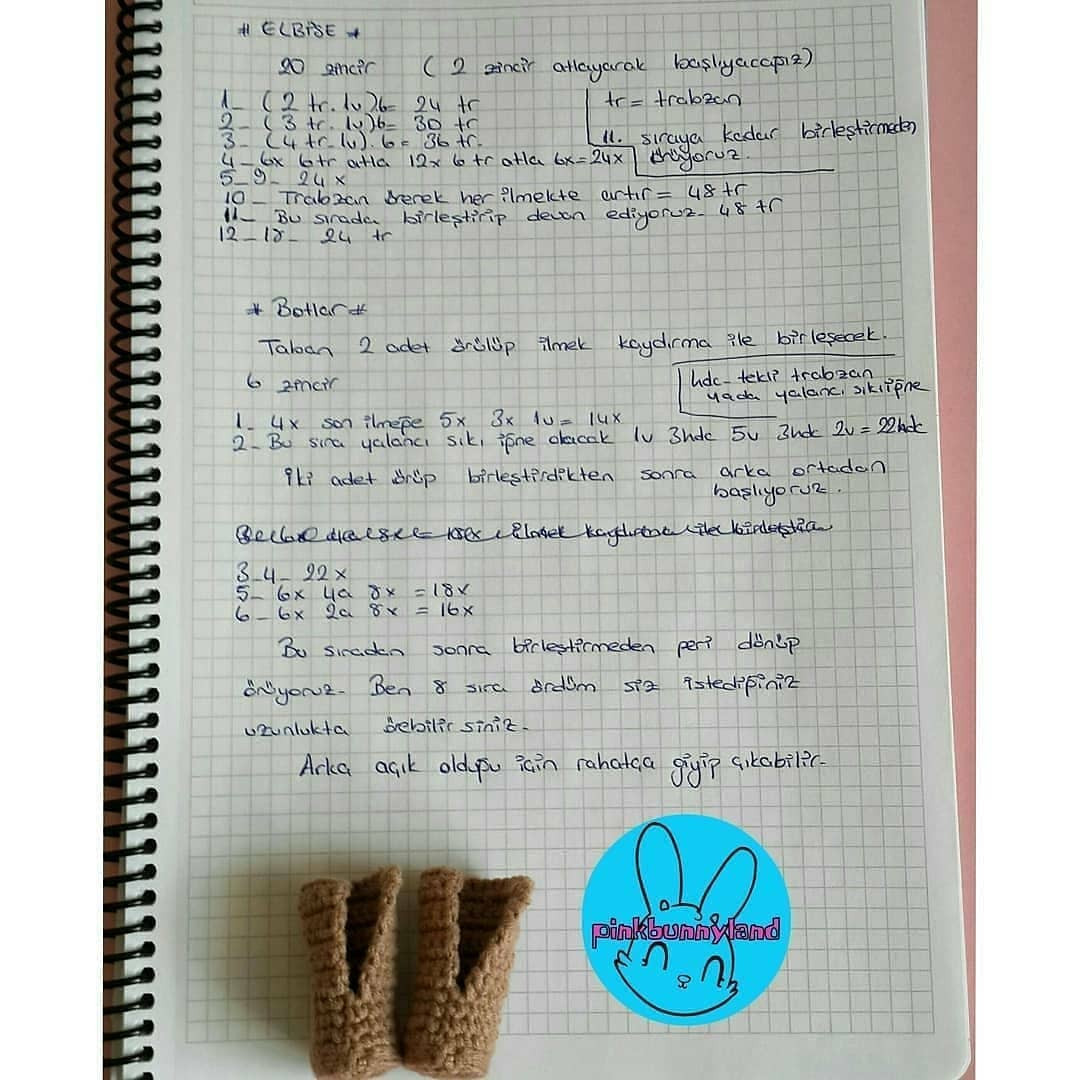 # ELBİSE *
20 zincir ( 2 zincir atlayarak başlıyacağız)
1_ ( 2 tr. 1v )6= 24 tr
2_ ( 3 tr. 1v)6= 30 tr
3_ (4 tr_ 1v). 6= 36 tr.
tr= trabzan
11. sıraya kadar birleştirmeden
örüyoruz.
4_ 6x 6tr atla 12x 6 tr atla 6x=24x
5_9_ 24x
10_ Trabzan örerek her ilmekte artır= 48 tr
11_ Bu sırada birleştirip devam ediyoruz_ 48 tr
12_18_ 24 tr
* Botlar *
Taban 2 adet örülüp ilmek kaydırma ile birleşecek.
6 zincir
hdc_ tekli trabzan
yada yalancı sıkıiğne
1_ 4x son ilmeğe 5x 3x 1v= 14x
2_ Bu sıra yalancı sıkı iğne olacak 1v 3hdc 5v 3hdc 2v=22hdc
İki adet örüp birleştirdikten sonra arka ortadan
başlıyoruz.
ilmek kaydırma ile
3_4_ 22x
5_ 6x 4a 8x =18x
6_ 6x 2a 8x = 16x
Bu sıradan sonra birleştirmeden geri dönüp
örüyoruz_ Ben 8 sıra ördüm siz istediğiniz
uzunlukta örebilir siniz_
Arka açık olduğu için rahatça giyip çıkabilir_
pinkbunnyland